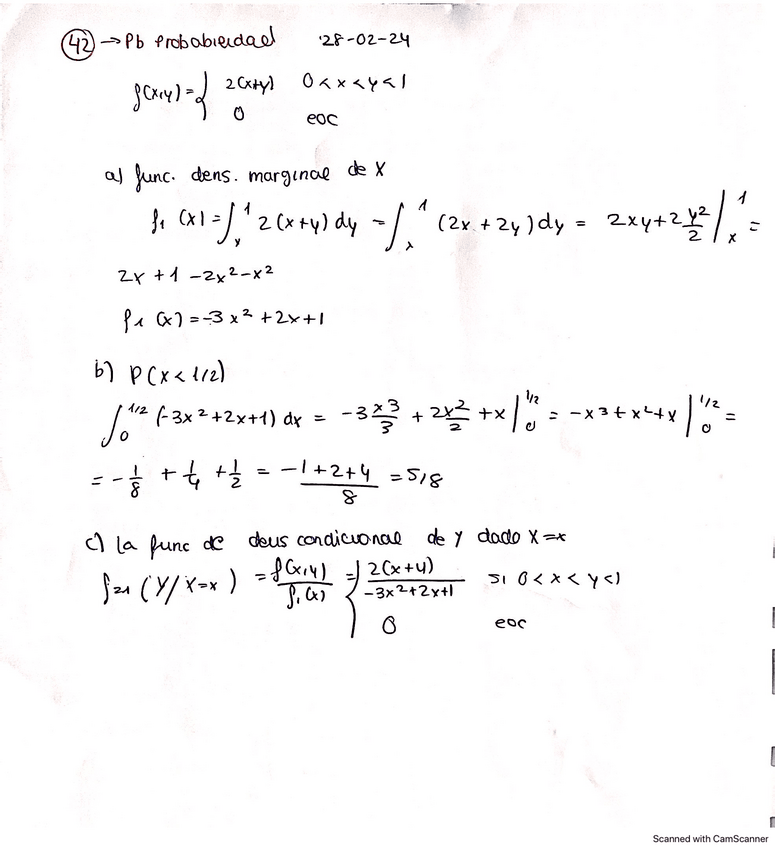 42 → Pb Probabilidad 28-02-24
f(x,y) = { 2(x+y) 0 < x < y < 1
0 eoc
a) func. dens. marginal de X
f1 (x) = ∫_x^1 2(x+y) dy = ∫_x^1 (2x + 2y) dy = 2xy + 2 y²/2 |_x^1 =
2x + 1 - 2x² - x²
f1 (x) = -3x² + 2x + 1
b) P(x < 1/2)
∫_0^1/2 (-3x² + 2x + 1) dx = -3 x³/3 + 2x²/2 + x |_0^1/2 = -x³ + x² + x |_0^1/2 =
= - 1/8 + 1/4 + 1/2 = (-1 + 2 + 4)/8 = 5/8
c) La func de dens condicional de Y dado X=x
f21 (Y/X=x) = f(x,y)/f1(x) = { 2(x+y)/(-3x²+2x+1) si 0 < x < y < 1
0 eoc
Scanned with CamScanner